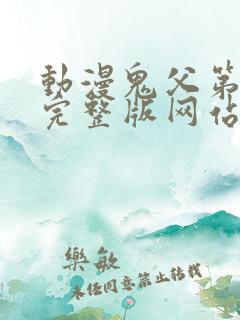 動漫鬼父第
完整版网站
樂敏
未经同意禁止转载